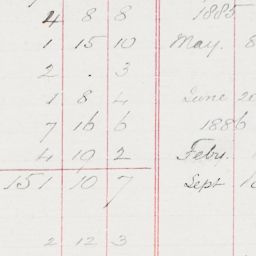 4 8 8 1885
1 15 10 May. 8
2 . 3
1 8 4 June 20
7 16 6 1886
4 19 2 Febr.
151 10 7 Sept 16
2 12 3